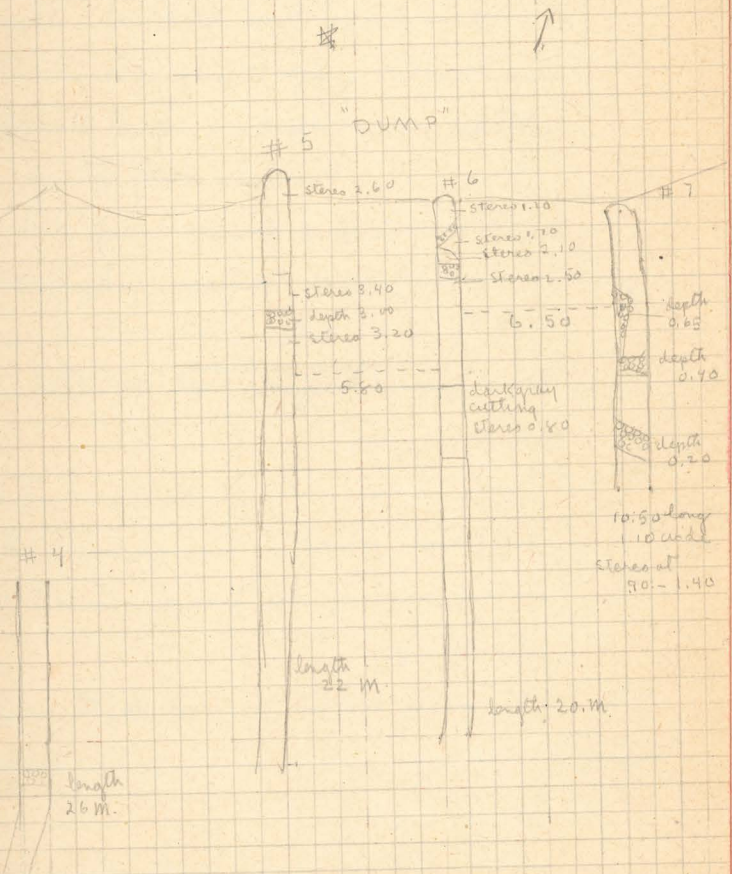 "DUMP"
# 5
stereo 2.60
stereo 3.40
depth 3.00
stereo 3.20
5.80
length
22 M.
# 6
stereo 1.10
stereo 1.70
stereo 2.10
stereo 2.50
6.50
dark gray
cutting
stereo 0.80
length 20. M.
# 7
depth
0.65
depth
0.40
depth
0.20
10.50 long
1.10 wide
stereo at
90 - 1.40
# 4
length
26 M.